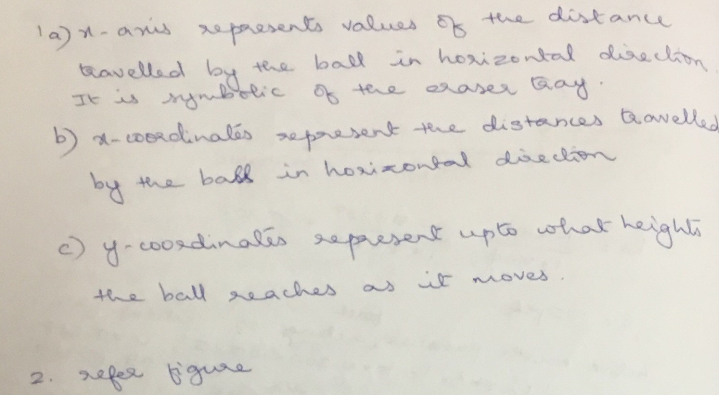 1a) x-axis represents values of the distance
travelled by the ball in horizontal direction.
It is symbolic of the eraser tray.
b) x-coordinates represent the distances travelled
by the ball in horizontal direction
c) y-coordinates represent upto what heights
the ball reaches as it moves.
2. refer figure